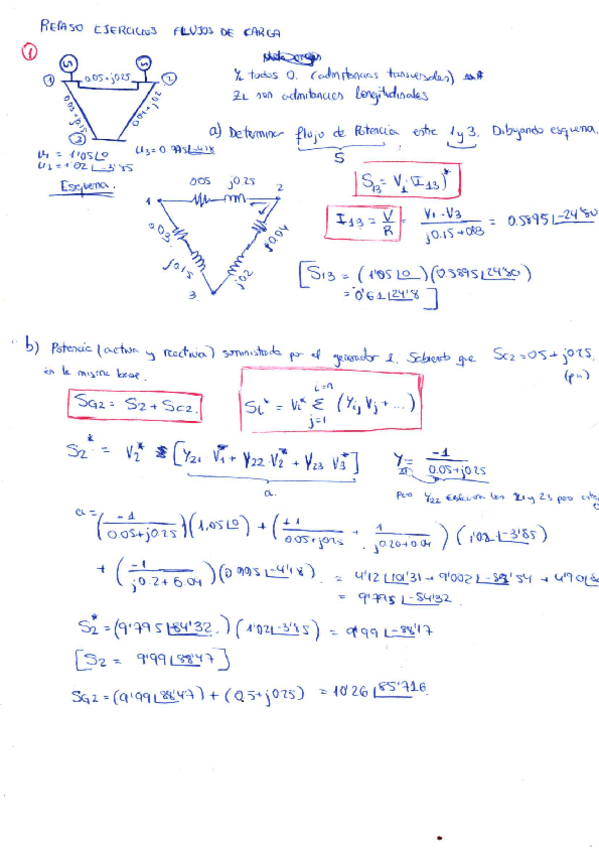 REPASO EJERCICIOS FLUJOS DE CARGA
①
S S
① 0.05+j0.25 ②
0.03+j0.15 0.04+j0.2
③
U1 = 1'05∠0 U3=0'995∠-4'18
U2=1'02∠-3'85
Y todos 0. (admitancias transversales)
ZL son admitancias longitudinales
a) Determinar flujo de Potencia entre 1 y 3. Dibujando esquema.
S
Esquema.
0.05 j0.25
1 2
0.03 j0.15
j0.2 0.04
3
S13 = V1·(I13)*
I13 = V/R = V1·V3/j0.15+0.03 = 0.5895∠-24'80
[S13 = (1'05∠0)(0.5895∠24'80)
=0'61∠24'8]
b) Potencia (activa y reactiva) suministrada por el generador 2. Sabiendo que Sc2=0.5+j0.25.
en la misma base. (pu)
SG2 = S2 + Sc2.
Si* = Vi* Σ (Yij Vj + ...)
i=n
j=1
S2* = V2* [Y21 V1* + Y22·V2* + Y23 V3*]
a.
Y21 = -1/0.05+j0.25
pero Y22
a = (-1/0.05+j0.25)(1,05∠0) + (+1/0.05+j0.25 + 1/j0.20+0.04) (1'02∠-3'85)
+ (-1/j0.2+0.04)(0.995∠-4'18) = 4'12∠101'31 + 9'002∠-83'54 + 4'90
= 9'795∠-84'32.
S2* = (9'795∠84'32)(1'02∠-3'85) = 9'99∠-88'17
[S2 = 9'99∠88'47]
SG2 = (9'99∠88'47) + (0,5+j0.25) = 10'26∠85'716.